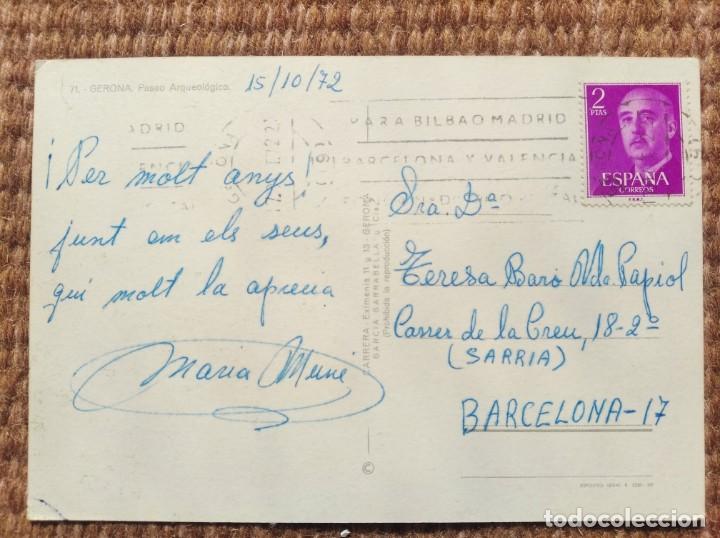 71. - GERONA. Paseo Arqueológico.
15/10/72
¡Per molt anys!
junt am els seus,
qui molt la aprecia
Maria Muné
ZARRERA - Eximenis 11 y 13 - GERONA
GARCIA GARRABELLA y Cia.
(Prohibida la reproducción)
©
PARA BILBAO MADRID
BARCELONA Y VALENCIA
2
PTAS
ESPAÑA
CORREOS
Sra. Dª
Teresa Baró Vda. Papiol
Carrer de la Creu, 18-2º
(SARRIA)
BARCELONA-17
todocoleccion.net